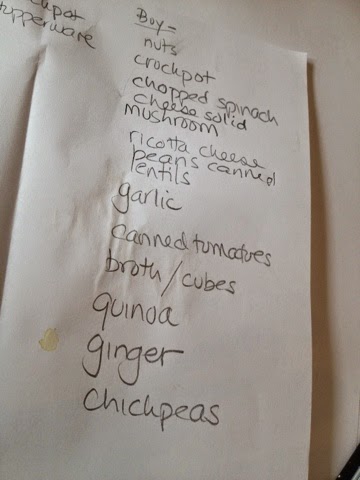 crockpot
tupperware
Buy=
nuts
crockpot
chopped spinach
cheese solid
mushroom
ricotta cheese
beans canned
lentils
garlic
canned tomatoes
broth/cubes
quinoa
ginger
chickpeas